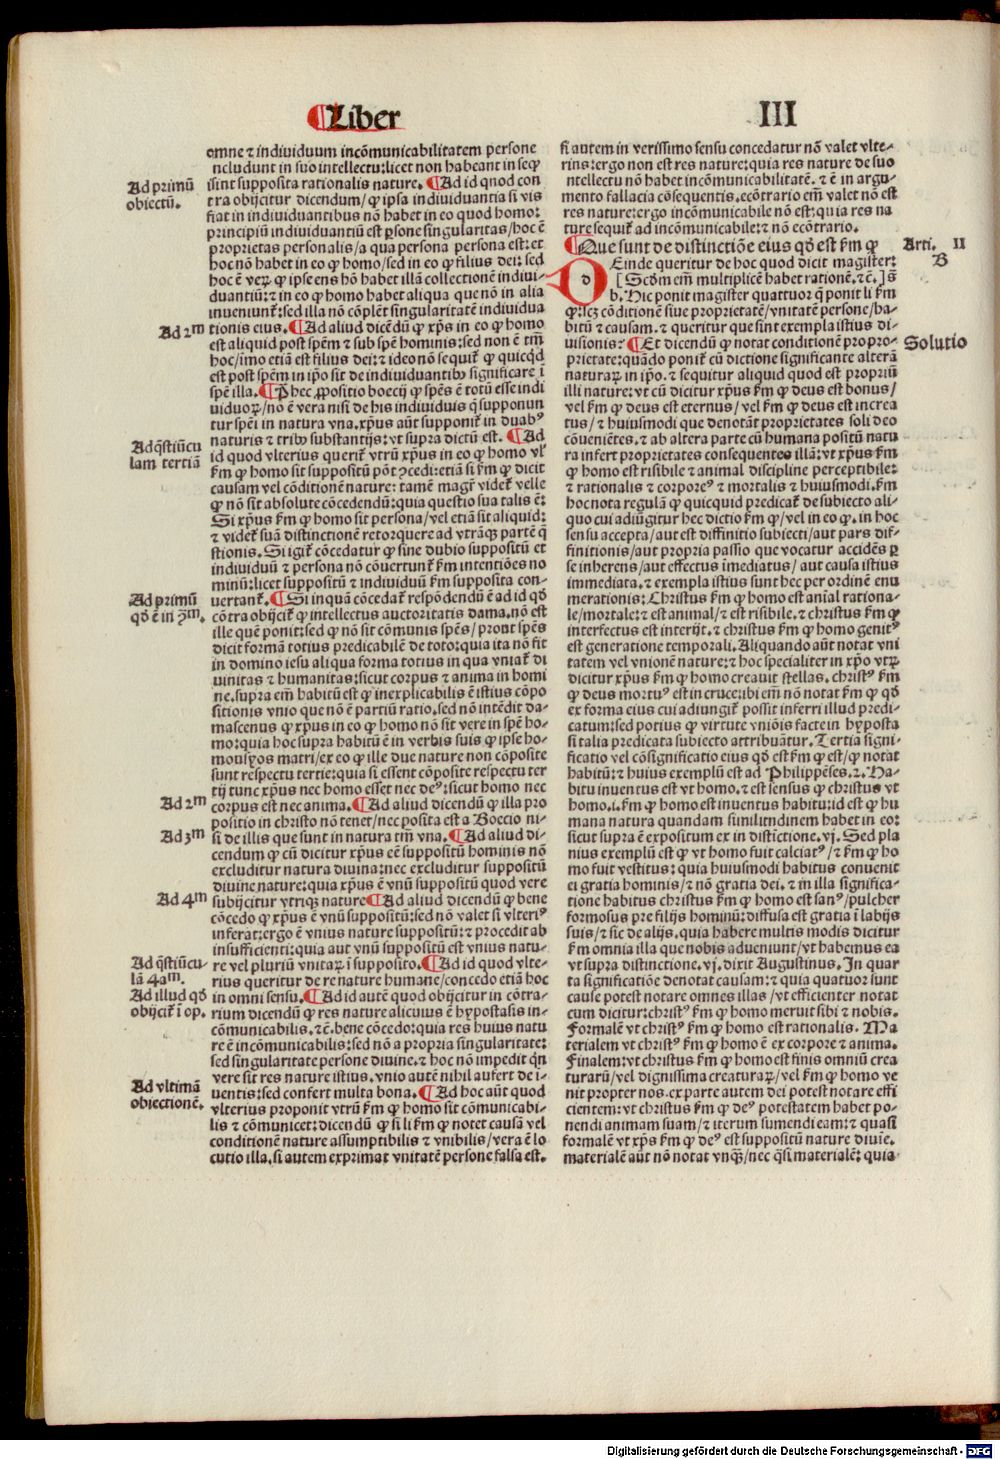 ¶Liber
III
omne ⁊ indiuiduum incõmunicabilitatem persone
ncludunt in suo intellectu: licet non habeant in se qp̱
isint supposita rationalis nature. ¶Ad id quod con
tra obijcitur dicendum/ ꝙ ipsa indiuiduantia si vis
fiat in indiuiduantibus nõ habet in eo quod homo:
principiũ indiuiduantiũ est ꝑsone singularitas/hoc ẽ
proprietas personalis/a qua persona persona est: et
hoc nõ habet in eo ꝙ homo/sed in eo ꝙ filius dei: sed
hoc ẽ verꝵ ꝙ ipse ens hõ habet illã collectionẽ indiui-
duantiũ: ⁊ in eo ꝙ homo habet aliqua que nõ in alia
inueniunt᷑: sed illa nõ cõplẽt singularitatẽ indiuidua
tionis eius. ¶Ad aliud dicẽdũ ꝙ xp̃s in eo ꝙ homo
est aliquid post spẽm ⁊ sub spẽ hominis: sed non ẽ tm̃
hoc/imo etiã est filius dei: ⁊ ideo nõ sequit᷑ ꝙ quicqd
est post spẽm in ip̃o sit de indiuiduantibꝰ significare ĩ
spẽ illa. ¶Per hec ꝓpositio boecij ꝙ spẽs ẽ totũ esse indi
uiduoꝵ/no ẽ vera nisi de his indiuiduis q̃ supponun
tur spẽi in natura vna. xp̃us aũt supponit᷑ in duabꝰ
naturis ⁊ tribꝰ substantijs: vt supra dictũ est. ¶Ad
id quod vlterius querit᷑ vtrũ xp̃us in eo ꝙ homo vl᷑
ẜm ꝙ homo sit suppositũ põt ꝯcedi: etiã si ẜm ꝙ dicit
causam vel cõditionẽ nature: tamẽ mag̃r videt᷑ velle
ꝙ nõ sit absolute cõcedendũ: quia questio sua talis ẽ:
Si xp̃us ẜm ꝙ homo sit persona/vel etiã sit aliquid:
⁊ videt᷑ suã distinctionẽ retorquere ad vtrãqꝫ partẽ q̃
stionis. Si igit᷑ cõcedatur ꝙ sine dubio suppositũ et
indiuiduũ ⁊ persona nõ cõuertunt᷑ ẜm intentiões no
minũ: licet suppositũ ⁊ indiuiduũ ẜm supposita con-
uertant᷑. ¶Si inquã cõcedat᷑ respõdendũ ẽ ad id qd̃
cõtra obijcit᷑ ꝙ intellectus auctoritatis dama. nõ est
ille quẽ ponit: sed ꝙ nõ sit cõmunis spẽs/ prout spẽs
dicit formã totius predicabilẽ de toto: quia ita nõ fit
in domino iesu aliqua forma totius in qua vniat᷑ di
uinitas ⁊ humanitas: sicut corpus ⁊ anima in homi
ne. supra em̃ habitũ est ꝙ inexplicabilis ẽ istius cõpo
sitionis vnio que nõ ẽ partiũ ratio. sed nõ intẽdit da-
mascenus ꝙ xp̃us in eo ꝙ homo nõ sit vere in spẽ ho-
mo: quia hoc supra habitũ ẽ in verbis suis ꝙ ipse ho-
mousyos matri/ex eo ꝙ ille due nature non cõposite
sunt respectu tertie: quia si essent cõposite respectu ter
tij tunc xp̃us nec homo esset nec deꝰ: sicut homo nec
corpus est nec anima. ¶Ad aliud dicendũ ꝙ illa pro
positio in christo nõ tenet/nec posita est a Boecio ni-
si de illis que sunt in natura tm̃ vna. ¶Ad aliud di-
cendum ꝙ cũ dicitur xp̃us eẽ suppositũ hominis nõ
excluditur natura diuina: nec excluditur suppositũ
diuine nature: quia xp̃us ẽ vnũ suppositũ quod vere
subijcitur vtriqꝫ nature ¶Ad aliud dicendũ ꝙ bene
cõcedo ꝙ xp̃us ẽ vnũ suppositũ: sed nõ valet si vlteriꝰ
inferat: ergo ẽ vnius nature suppositũ: ⁊ procedit ab
insufficienti: quia aut vnũ suppositũ est vnius natu-
re vel pluriũ vnitaꝵ ĩ supposito. ¶Ad id quod vlte-
rius queritur de re nature humane/concedo etiã hoc
in omni sensu. ¶Ad id autẽ quod obijcitur in cõtra-
rium dicendũ ꝙ res nature alicuius ẽ hypostasis in-
cõmunicabilis. ⁊cẽ. bene cõcedo: quia res huius natu
re ẽ incõmunicabilis: sed nõ a propria singularitate:
sed singularitate persone diuine. ⁊ hoc nõ impedit q̃n
vere sit res nature istius. vnio autẽ nihil aufert de ĩ-
uentis: sed confert multa bona. ¶Ad hoc aũt quod
vlterius proponit vtrũ ẜm ꝙ homo sit cõmunicabi-
lis ⁊ cõmunicet: dicendũ ꝙ si li ẜm ꝙ notet causã vel
conditionẽ nature assumptibilis ⁊ vnibilis/vera ẽ lo
cutio illa. si autem exprimat vnitatẽ persone falsa est.
Ad primũ
obiectũ.
Ad 2m
Ad q̃stiũcu
lam tertiã
Ad primũ
qd̃ ẽ in ꝫm.
Ad 2m
Ad 3m
Ad 4m
Ad q̃stiũcu-
lã 4am.
Ad illud qd̃
obijcit᷑ ĩ op.
Ad vltimã
obiectionẽ.
si autem in verissimo sensu concedatur nõ valet vlte-
rius: ergo non est res nature: quia res nature de suo
intellectu nõ habet incõmunicabilitatẽ. ⁊ ẽ in argu-
mento fallacia cõsequentis. ecõtrario em̃ valet nõ est
res nature: ergo incõmunicabile nõ est: quia res na
ture sequit᷑ ad incõmunicabile: ⁊ nõ ecõtrario.
¶Que sunt de distinctiõe eius qd̃ est ẜm ꝙ
DEinde queritur de hoc quod dicit magister:
[Scd̃m em̃ multiplicẽ habet rationẽ. ⁊cẽ.] s̃
b. Hic ponit magister quattuor q̃ ponit li ẜm
ꝙ: scꝫ cõditionẽ siue proprietatẽ/vnitatẽ persone/ha-
bitũ ⁊ causam. ⁊ queritur que sint exempla istius di-
uisionis? ¶Et dicendũ ꝙ notat conditionẽ pro pro-
prietate: quãdo ponit᷑ cũ dictione significante alterã
naturaꝵ in ip̃o. ⁊ sequitur aliquid quod est propriũ
illi nature: vt cũ dicitur xp̃us ẜm ꝙ deus est bonus/
vel ẜm ꝙ deus est eternus/ vel ẜm ꝙ deus est increa
tus/ ⁊ huiusmodi que denotãt proprietates soli deo
cõueniẽtes. ⁊ ab altera parte cũ humana positũ natu
ra infert proprietates consequentes illã: vt xp̃us ẜm
ꝙ homo est risibile ⁊ animal discipline perceptibile:
⁊ rationalis ⁊ corporeꝰ ⁊ mortalis ⁊ huiusmodi. ẜm
hoc nota regulã ꝙ quicquid predicat᷑ de subiecto ali-
quo cui adiũgitur hec dictio ẜm ꝙ/vel in eo ꝙ. in hoc
sensu accepta/aut est diffinitio subiecti/aut pars dif-
finitionis/aut propria passio que vocatur accidẽs ꝑ
se inherens/aut effectus ĩmediatus/ aut causa istius
immediata. ⁊ exempla istius sunt hec per ordinẽ enu
merationis: Christus ẜm ꝙ homo est aĩal rationa-
le/mortale: ⁊ est animal/⁊ est risibile. ⁊ christus ẜm ꝙ
interfectus est interijt. ⁊ christus ẜm ꝙ homo genitꝰ
est generatione temporali. Aliquando aũt notat vni
tatem vel vnionẽ nature: ⁊ hoc specialiter in xp̃o vtꝵ
dicitur xp̃us ẜm ꝙ homo creauit stellas. christꝰ ẜm
ꝙ deus mortuꝰ est in cruce: ibi em̃ nõ notat ẜm ꝙ qd̃
ex forma eius cui adiungit᷑ possit inferri illud predi-
catum: sed potius ꝙ virtute vniõis facte in hyposta
si talia predicata subiecto attribuãtur. Tertia signi-
ficatio vel cõsignificatio eius qd̃ est ẜm ꝙ est/ꝙ notat
habitũ: ⁊ huius exemplũ est ad Philippẽses. 2. Ha-
bitu inuentus est vt homo. ⁊ est sensus ꝙ christus vt
homo. i. ẜm ꝙ homo est inuentus habitu: id est ꝙ hu
mana natura quandam similitudinem habet in eo:
sicut supra ẽ expositum ex in distĩctione. vj. Sed pla
nius exemplũ est ꝙ vt homo fuit calciatꝰ/⁊ ẜm ꝙ ho
mo fuit vestitus: quia huiusmodi habitus conuenit
ei gratia hominis/⁊ nõ gratia dei. ⁊ in illa significa-
tione habitus christus ẜm ꝙ homo est sanꝰ/pulcher
formosus pre filijs hominũ: diffusa est gratia ĩ labijs
suis/⁊ sic de alijs. quia habere multis modis dicitur
ẜm omnia illa que nobis adueniunt/vt habemus ea
vt supra distinctione. vj. dixit Augustinus. In quar
ta significatiõe denotat causam: ⁊ quia quatuor sunt
cause potest notare omnes illas /vt efficienter notat
cum dicitur: christꝰ ẜm ꝙ homo meruit sibi ⁊ nobis.
Formalẽ vt christꝰ ẜm ꝙ homo est rationalis. Ma
terialem vt christꝰ ẜm ꝙ homo ẽ ex corpore ⁊ anima.
Finalem: vt christus ẜm ꝙ homo est finis omniũ crea
turarũ/vel dignissima creaturaꝵ/vel ẜm ꝙ homo ve
nit propter nos. ex parte autem dei potest notare effi
cientem: vt christus ẜm ꝙ deꝰ potestatem habet po-
nendi animam suam/ ⁊ iterum sumendi eam: ⁊ quasi
formalẽ vt xp̃s ẜm ꝙ deꝰ est suppositũ nature diuĩe.
materialẽ aũt nõ notat vnq̃ꝫ/nec q̃si materialẽ: quia
Arti. II
B
Solutio
Digitalisierung gefördert durch die Deutsche Forschungsgemeinschaft - DFG